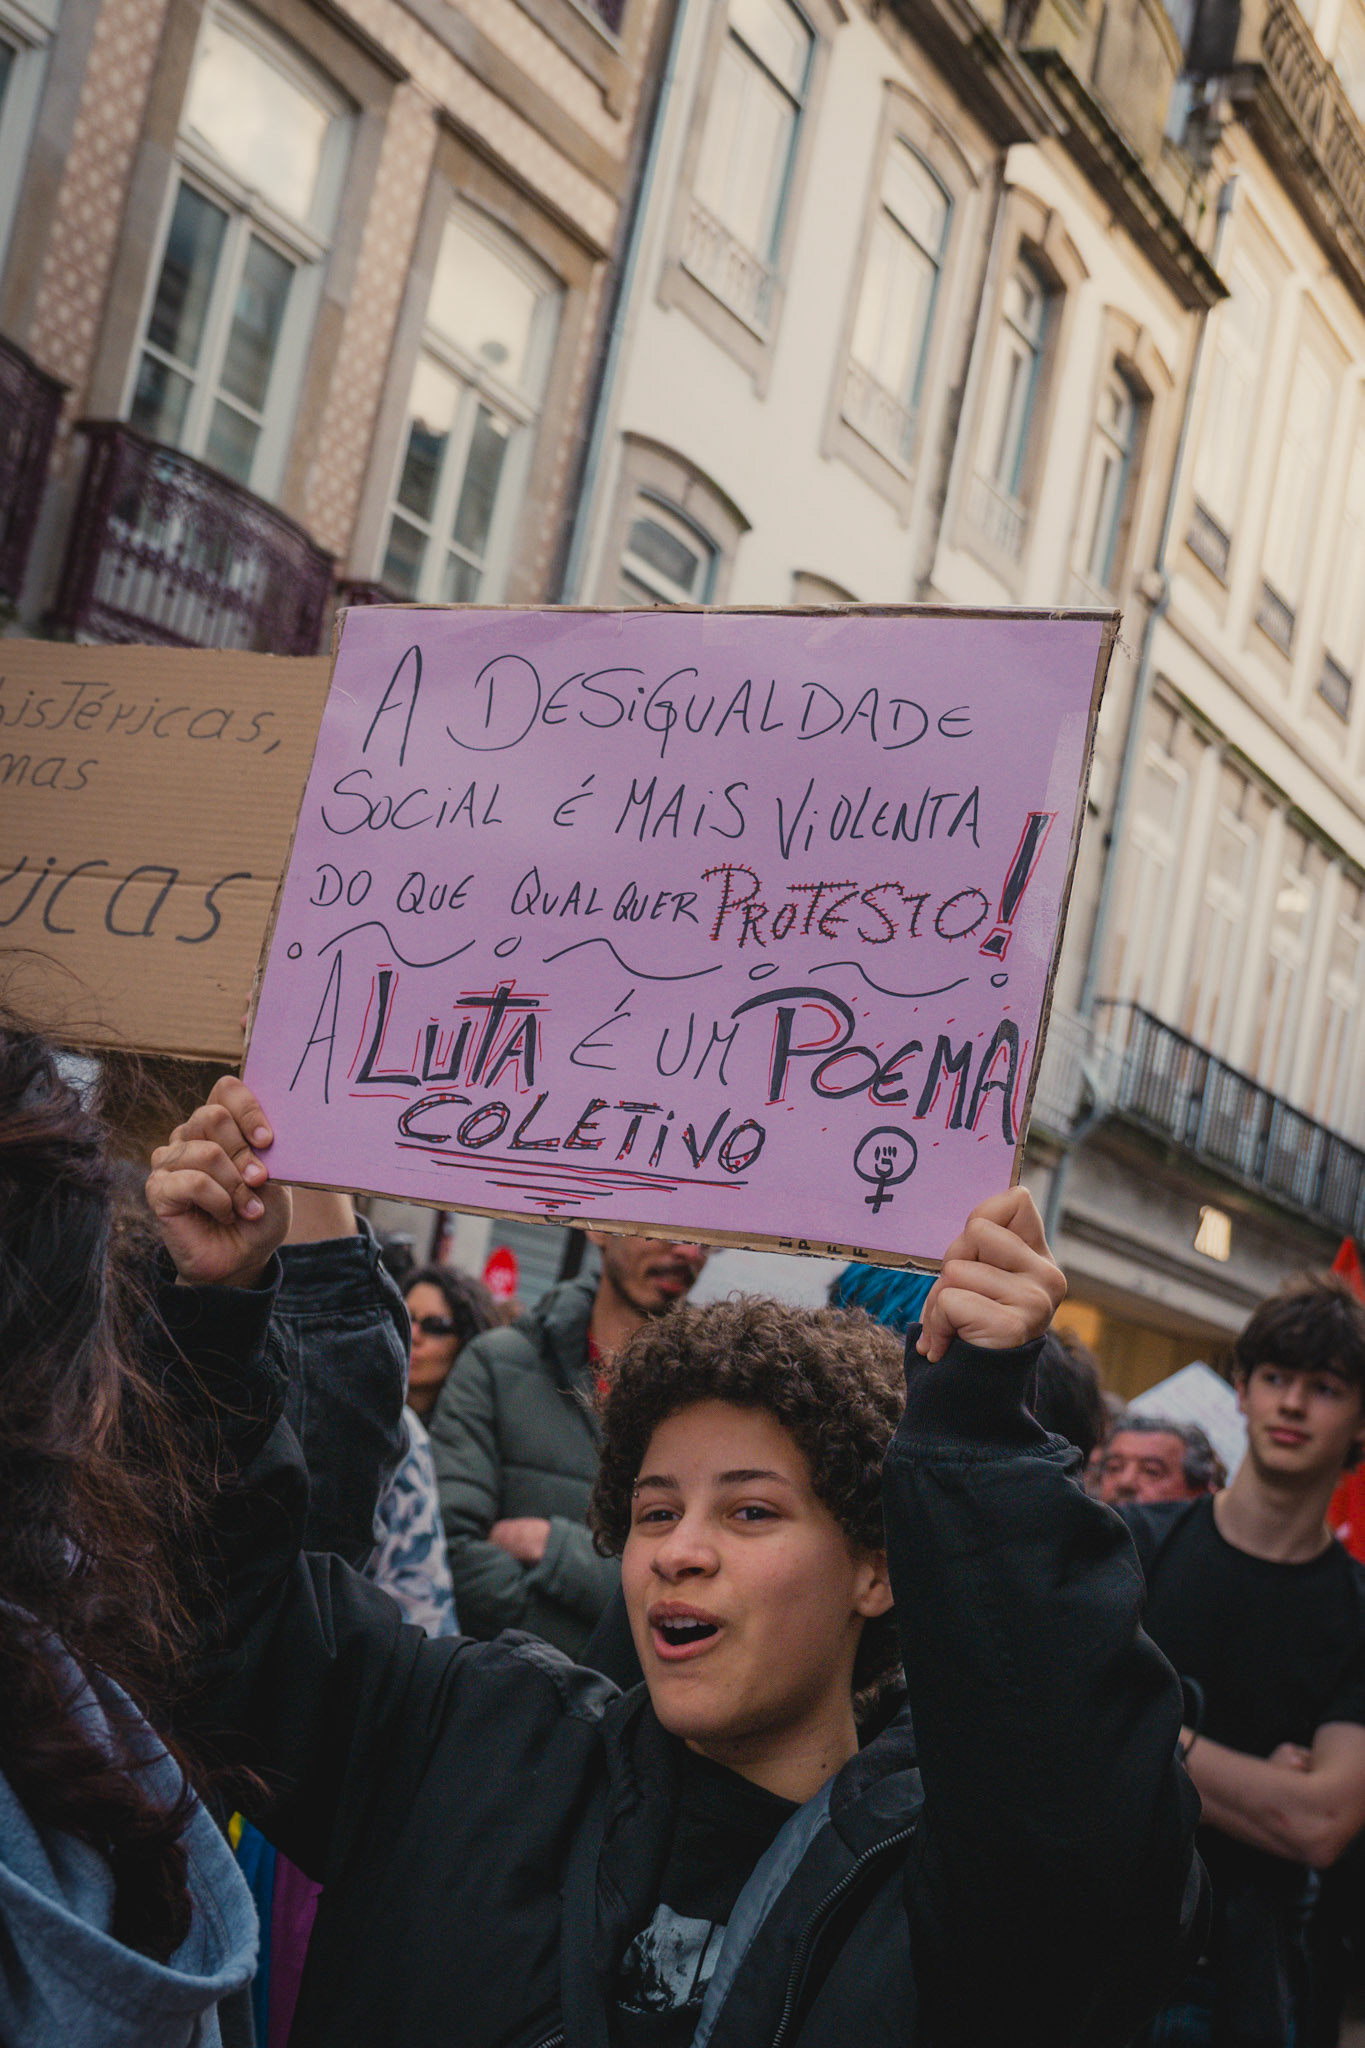 histéricas,
mas
A DESiGUALDADE
SOCiAL É MAiS ViOLENTA
DO QUE QUALQUER PROTESTO!
A LUTA É UM POEMA
COLETiVO